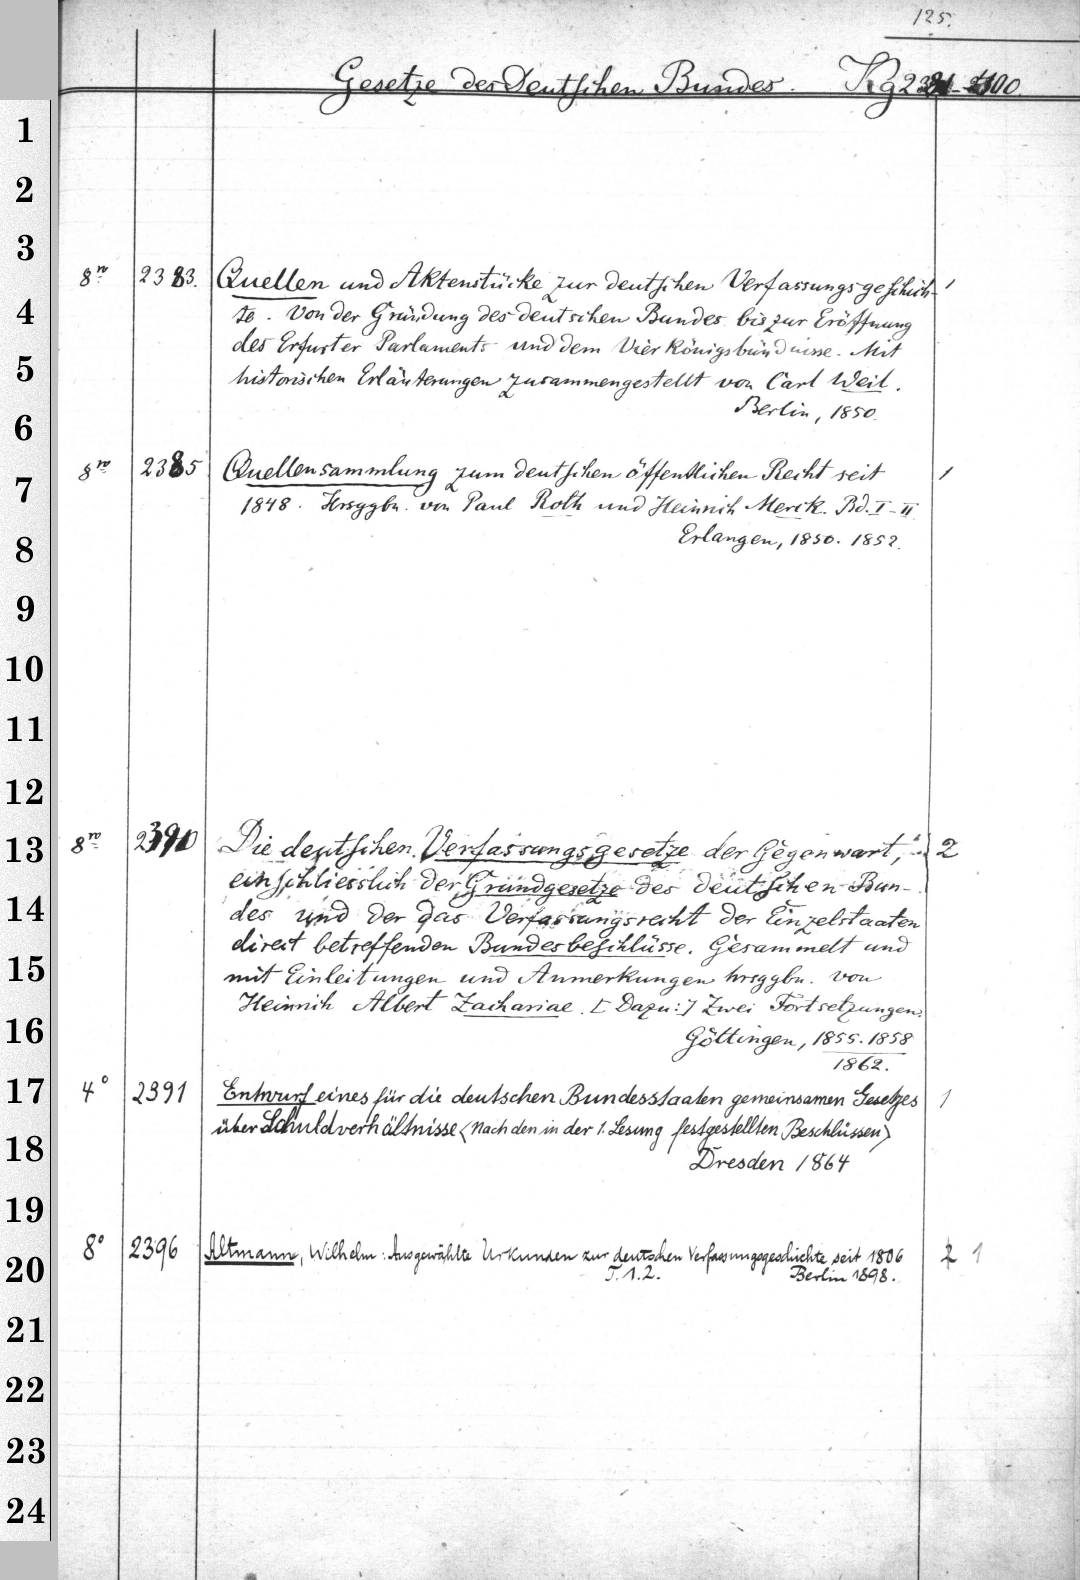 125.
Gesetze des Deutschen Bundes. Kg 2381-2400.
1
2
3
8vo 2383. Quellen und Aktenstücke zur deutschen Verfassungsgeschich- 1
4
te. Von der Gründung des deutschen Bundes bis zur Eröffnung
des Erfurter Parlaments und dem Vierkönigsbündnisse. Mit
5
historischen Erläuterungen zusammengestellt von Carl Weil.
Berlin, 1850.
6
8vo 2385 Quellensammlung zum deutschen öffentlichen Recht seit 1
7
1848. Hrsggbn. von Paul Roth und Heinrich Merck. Bd. I-II
8
Erlangen, 1850. 1852.
9
10
11
12
13
8vo 2390 Die deutschen Verfassungsgesetze der Gegenwart, 2
einschliesslich der Grundgesetze des deutschen Bun-
14
des und der das Verfassungsrecht der Einzelstaaten
direct betreffenden Bundesbeschlüsse. Gesammelt und
15
mit Einleitungen und Anmerkungen hrsggbn. von
Heinrich Albert Zachariae. [Dazu:] Zwei Fortsetzungen.
16
Göttingen, 1855. 1858
1862.
17
4° 2391 Entwurf eines für die deutschen Bundesstaaten gemeinsamen Gesetzes 1
über Schuldverhältnisse <Nach den in der 1. Lesung festgestellten Beschlüssen>
18
Dresden 1864
19
8° 2396 Altmann, Wilhelm: Ausgewählte Urkunden zur deutschen Verfassungsgeschichte seit 1806 2 1
20
T. 1.2. Berlin 1898.
21
22
23
24